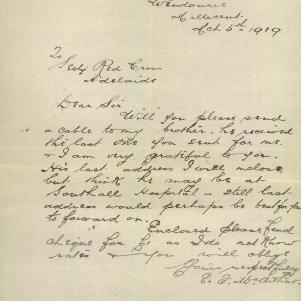 Wendouree
Millicent.
Oct 5th, 1919
To
Secty Red Cross
Adelaide
Dear Sir
Will you please send
a cable to my brother. he received
the last one you sent for me.
& I am very grateful to you.
His last address I will enclose
but think he may be at
Southall Hospital - still last
address would perhaps be best for you
to forward on.
Enclosed please find
cheque for £1 as I do not know
rates & you will oblige
Yours respectfully
E. F. McArthur